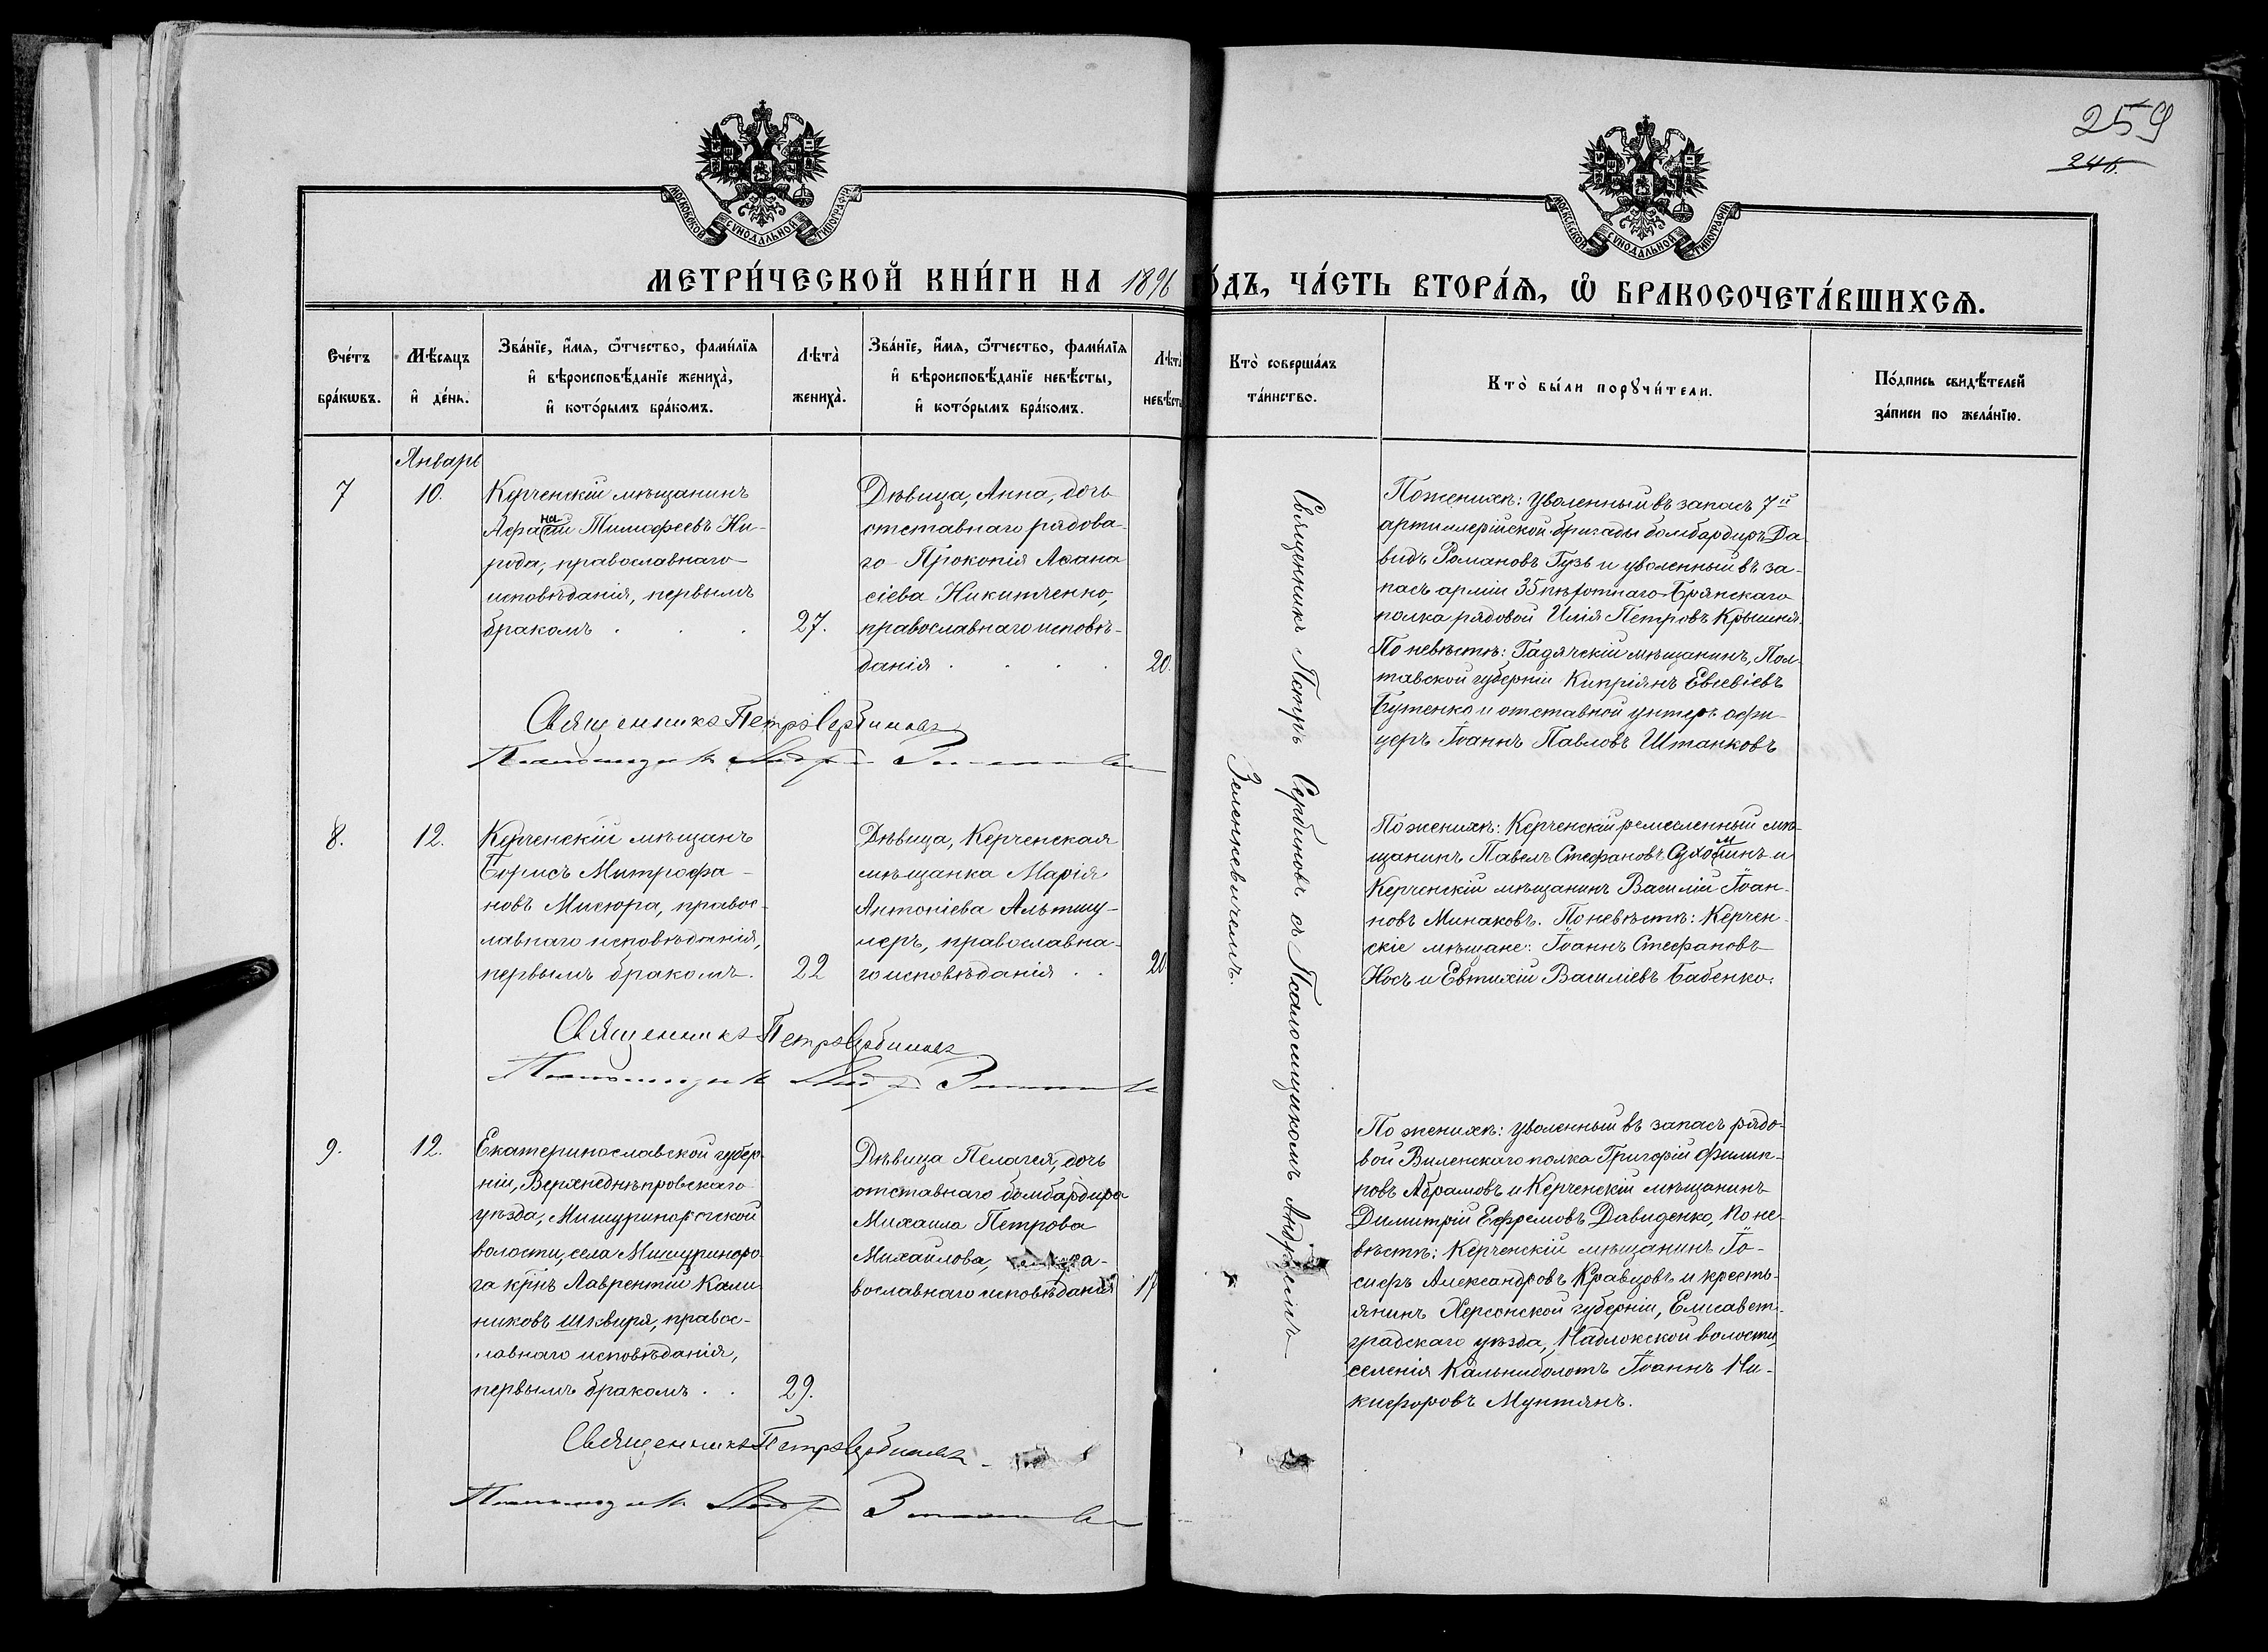 259
246.
МОСКОВСКОЙ СѴНОДАЛЬНОЙ ТИПОГРАФІИ
МОСКОВСКОЙ СѴНОДАЛЬНОЙ ТИПОГРАФІИ
МЕТРИ́ЧЕСКОЙ КНИ́ГИ НА 1896 ГО́ДЪ, ЧА́СТЬ ВТОРА́Ѧ, Ѡ҆ БРАКОСОЧЕТА́ВШИХСѦ.
Сче́тъ
бра́кѡвъ.
Мѣ́сяцъ
и҆ де́нь.
Зва́нїе, и҆́мя, ѻ҆́тчество, фами́лїя
и҆ вѣроисповѣ́данїе жениха̀,
и҆ кото́рымъ бра́комъ.
Лѣта̀
жениха̀.
Зва́нїе, и҆́мя, ѻ҆́тчество, фами́лїя
и҆ вѣроисповѣ́данїе невѣ́сты,
и҆ кото́рымъ бра́комъ.
Лѣта̀
невѣ́сты
Кто̀ соверша́лъ
та́инство.
Кто̀ бы́ли порꙋчи́тели.
По́дпись свидѣ́телей
за́писи по жела́нїю.
Январь
7
10.
Керченскій мѣщанинъ
Афанасій Тимофеевъ Ни-
рода, православнаго
исповѣданія, первымъ
бракомъ . . .
27.
Дѣвица, Анна, дочь
отставнаго рядова-
го Прокопія Афана
сіева Никитченко,
православнаго исповѣ-
данія . . . .
20.
Священникъ Петръ Сербиновъ
Псаломщикъ Андрей
Священникъ Петръ Сербиновъ съ Псаломщикомъ Андреемъ
Зеленкевичемъ.
По женихѣ: уволенный въ запасъ 7й
артиллерійской бригады бомбардиръ Да-
видъ Романовъ Гузь и уволенный въ за-
пасъ арміи 35 пѣхотнаго Брянскаго
полка рядовой Илія Петровъ Крышня.
По невѣстѣ: Гадячскій мѣщанинъ, Пол-
тавской губерніи Кипріянъ Евсевіевъ
Бутенко и отставной унтеръ офи-
церъ Іоаннъ Павловъ Штанковъ
8.
12.
Керченскій мѣщанъ
Борисъ Митрофа-
новъ Мисюра, правос-
лавнаго исповѣданія,
первымъ бракомъ.
22
Дѣвица, Керченская
мѣщанка Марія
Антоніева Альтшу-
леръ, православна-
го исповѣданія . .
20
Священникъ Петръ Сербиновъ
Псаломщикъ Андрей
По женихѣ: Керченскій ремесленный мѣ-
щанинъ Павелъ Стефановъ Сухоминъ и
Керченскій мѣщанинъ Василій Іоан-
новъ Минаковъ. По невѣстѣ: Керчен-
скіе мѣщане: Іоаннъ Стефановъ
Носъ и Евтихій Василіевъ Бабенко.
9.
12.
Екатеринославской губер-
ніи, Верхнеднѣпровскаго
уѣзда, Мишуринорогской
волости, села Мишуриноро-
га крнъ Лаврентій Кали-
никовъ Шквиря, правос-
лавнаго исповѣданія,
первымъ бракомъ . .
29.
Дѣвица Пелагея, дочь
отставнаго бомбардира
Михаила Петрова
Михайлова, пра-
вославнаго исповѣданія
17
Священникъ Петръ Сербиновъ
Псаломщикъ Андрей
По женихѣ: уволенный въ запасъ рядо-
вой Виленскаго полка Григорій Филип-
повъ Абрамовъ и Керченскій мѣщанинъ
Димитрій Ефремовъ Давиденко, По не-
вѣстѣ: Керченскій мѣщанинъ Іо-
сифъ Александровъ Кравцовъ и кресть-
янинъ Херсонской губерніи, Елисавет-
градскаго уѣзда, Надлокской волости,
селенія Кальниболотъ Іоаннъ Ни-
кифоровъ Мунтянъ.